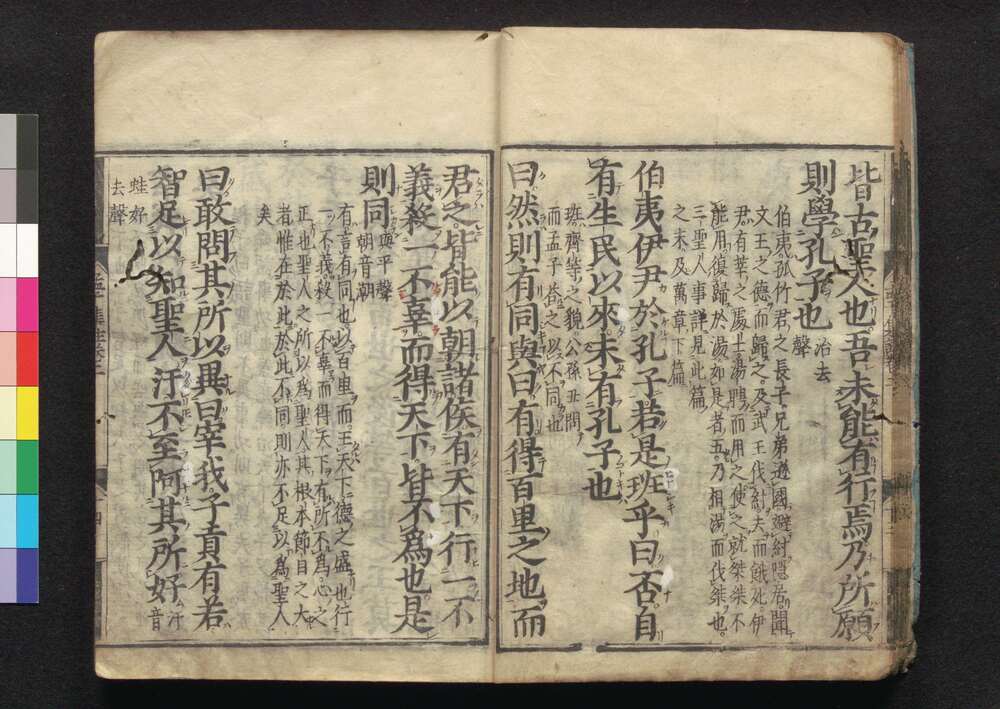 皆古聖人也吾未能有行焉乃所願
則學孔子也治去聲
伯夷孤竹君之長子兄弟遜國避紂隱居聞
文王之德而歸之及武王伐紂去而餓死伊
尹有莘之處士湯聘而用之使之就桀桀不
能用復歸於湯如是者五乃相湯而伐桀也
三聖人事詳見此篇
之末及萬章下篇
伯夷伊尹於孔子若是班乎曰否自
有生民以來未有孔子也
班齊等之貌公孫丑問
而孟子答之以不同也
曰然則有同與曰有得百里之地而
君之皆能以朝諸侯有天下行一不
義殺一不辜而得天下皆不爲也是
則同與平聲朝音潮
有言有同也以百里而王天下德之盛也行
一不義殺一不辜而得天下有所不爲心之
正也聖人之所以爲聖人其根本節目之大
者惟在於此於此不同則亦不足以爲聖人
矣
曰敢問其所以異曰宰我子貢有若
智足以知聖人汙不至阿其所好汙音
蛙好
去聲